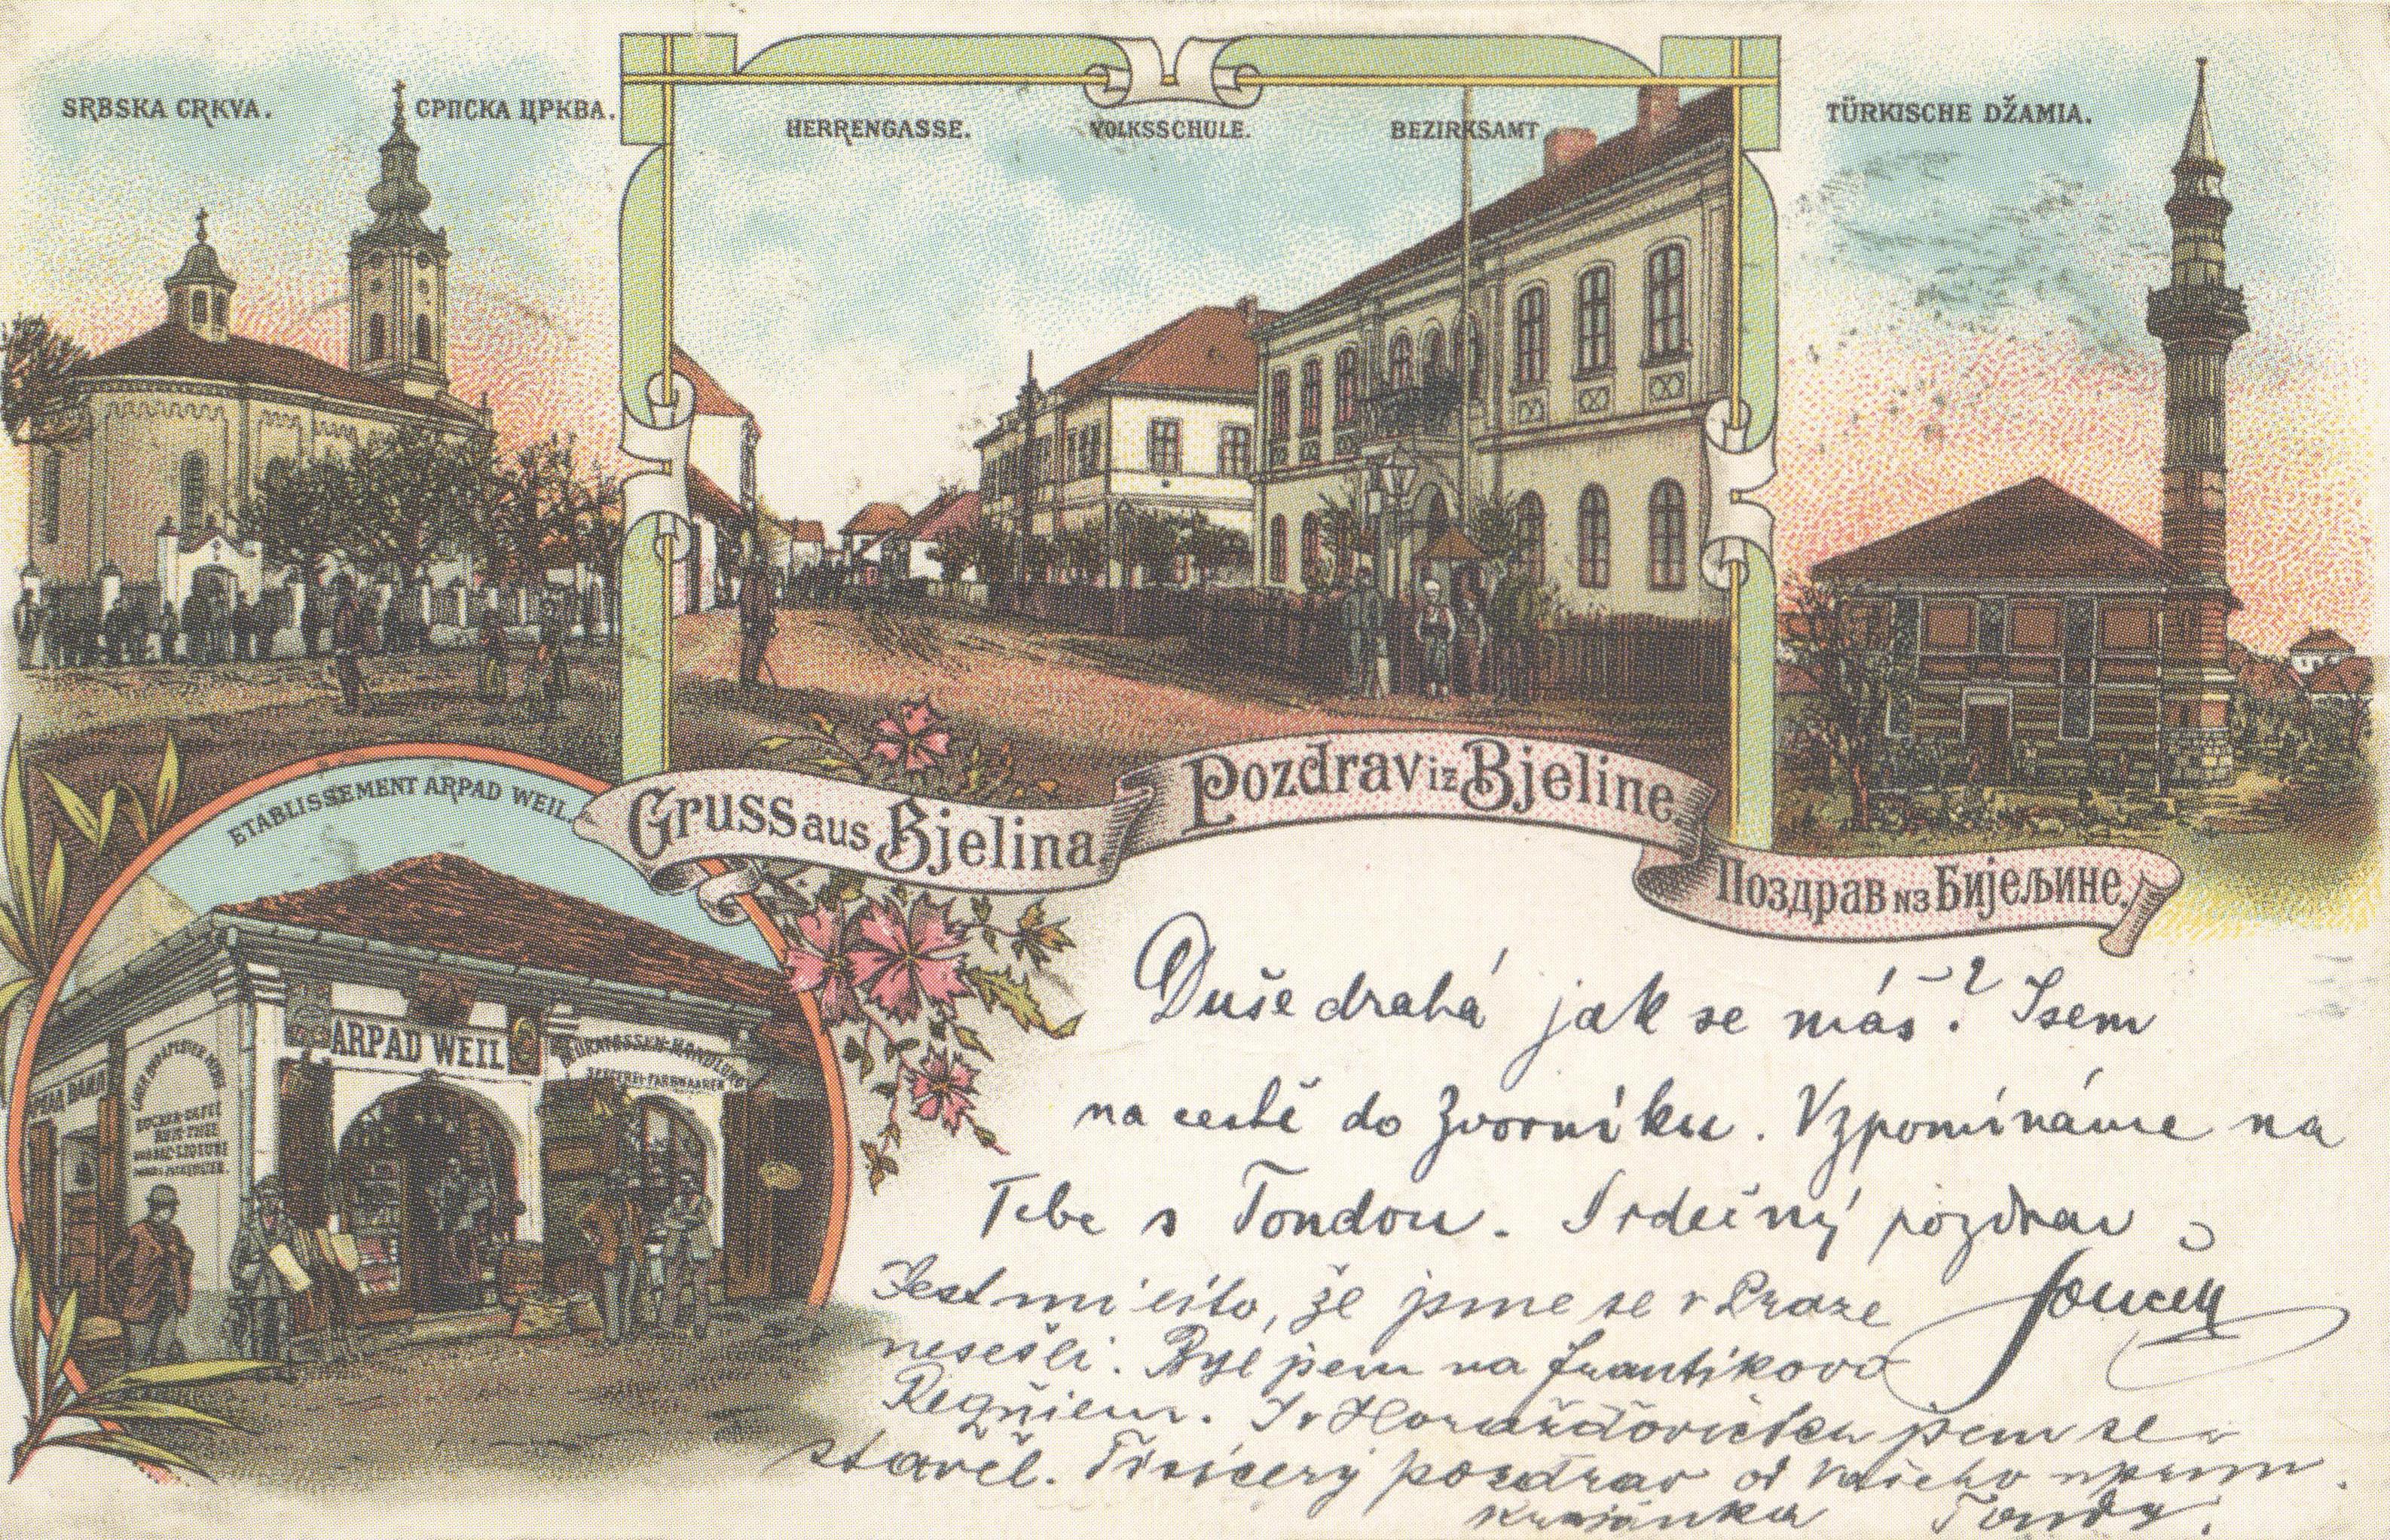 SRBSKA CRKVA.
СРПСКА ЦРКВА.
HERRENGASSE.
VOLKSSCHULE.
BEZIRKSAMT
TÜRKISCHE DŽAMIA.
ETABLISSEMENT ARPAD WEIL.
Gruss aus Bjelina.
Pozdrav iz Bjeline.
Поздрав из Бијељине.
ARPAD WEIL
SPECEREI-FARBWAAREN
Duše drahá jak se máš? Jsem
na cestě do Zvorníku. Vzpomínáme na
Tebe s Tondou. Srdečný pozdrav
Jest mi líto, že jsme se v Praze
nesešli. Byl jsem na Frantíkovo
Requiem. I v Horažďovicích jsem se
stavěl. Tisícerý pozdrav od Vašeho
Tondy.